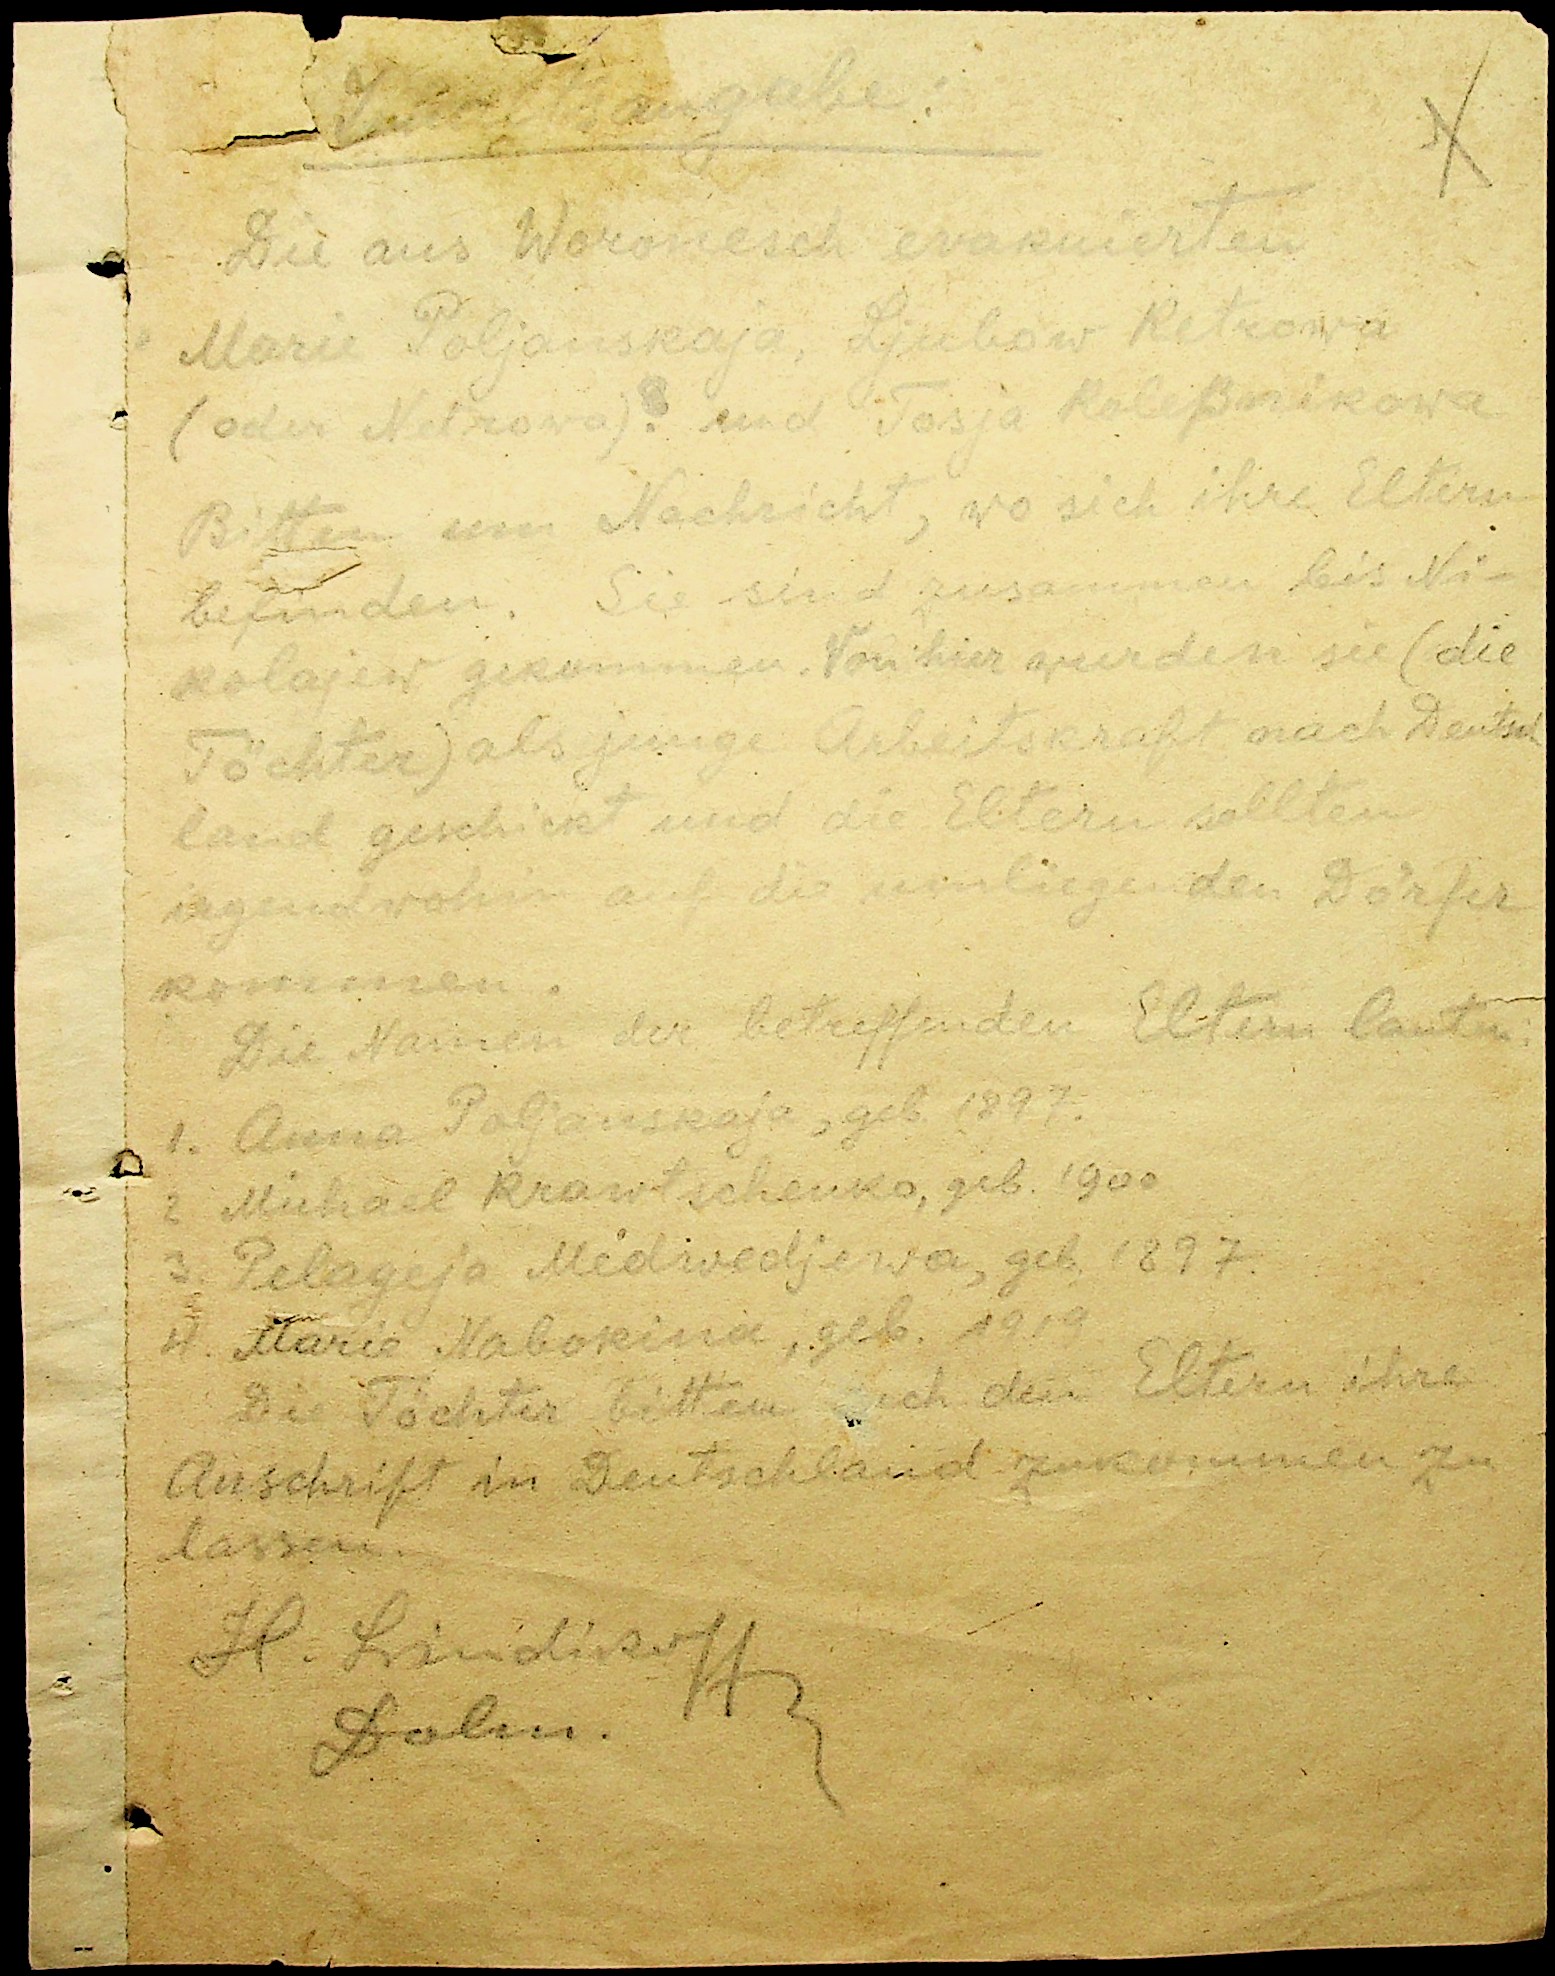 Die aus Woronesch evakuierten
Marie Poljanskaja, Ljubow Ketrowa
(oder Netrowa)? und Tosja Koleßnikowa
Bitten um Nachricht, wo sich ihre Eltern
befinden. Sie sind zusammen bis Ni-
kolajew gekommen. Von hier wurden sie (die
Töchter) als junge Arbeitskraft nach Deutsch
land geschickt und die Eltern sollten
irgendwohin auf die umliegenden Dörfer
kommen.
Die Namen der betreffenden Eltern lauten:
1. Anna Poljanskaja, geb. 1897.
2 Michael Krawtschenko, geb. 1900
3. Pelageja Medwedjewa, geb. 1897.
4. Marie Nabokina, geb. 1919
Die Töchter bitten auch den Eltern ihre
Anschrift in Deutschland zukommen zu
lassen.
H.
Dolm.